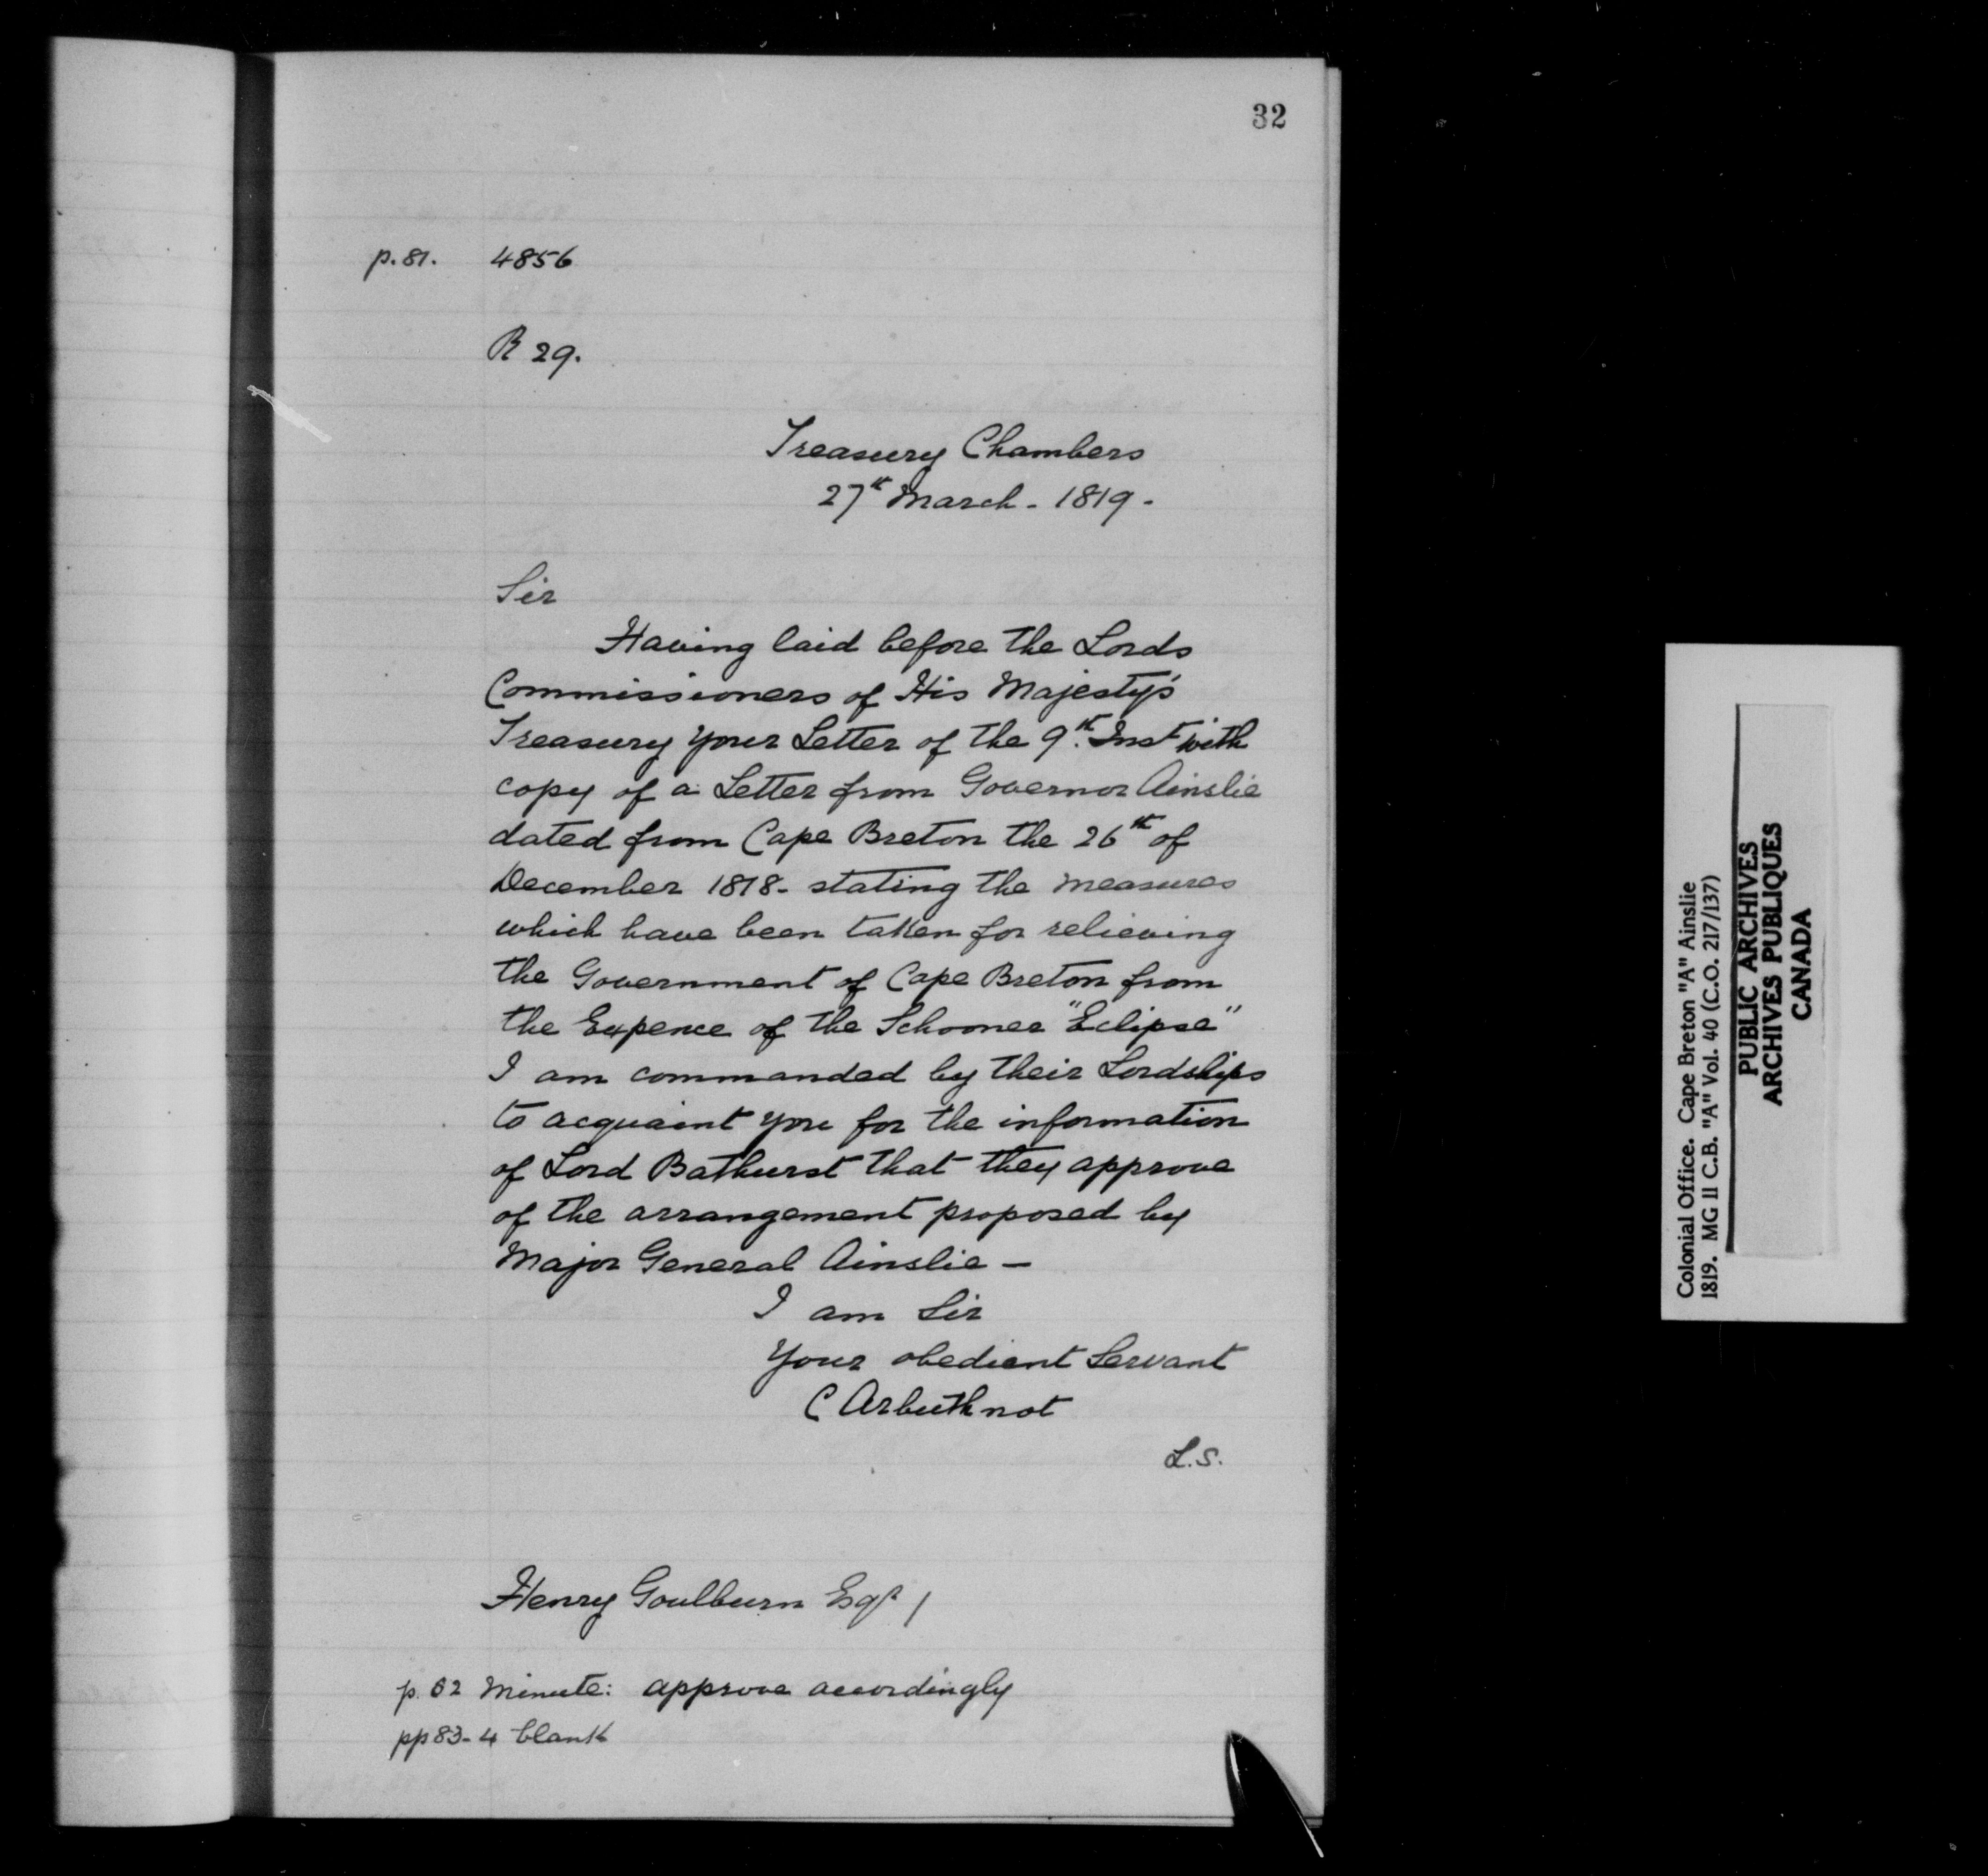 32
p. 81. 4856
R 29.
Treasury Chambers
27th March - 1819 -
Sir
Having laid before the Lords
Commissioners of His Majesty's
Treasury your Letter of the 9th. Inst with
copy of a Letter from Governor Ainslie
dated from Cape Breton the 26th of
December 1818 - stating the measures
which have been taken for relieving
the Government of Cape Breton from
the Expence of the Schooner "Eclipse"
I am commanded by their Lordships
to acquaint you for the information
of Lord Bathurst that they approve
of the arrangement proposed by
Major General Ainslie —
I am Sir
Your obedient Servant
C Arbuthnot
L.S.
Henry Goulburn Esqr /
p. 82 Minute: approve accordingly
pp 83-4 blank
Colonial Office. Cape Breton "A" Ainslie
1819. MG 11 C.B. "A" Vol. 40 (C.O. 217/137)
PUBLIC ARCHIVES
ARCHIVES PUBLIQUES
CANADA